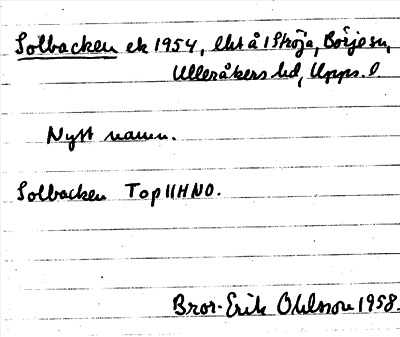 Solbacken ek 1954, lht å 1 Ströja, Börje sn,
Ulleråkers hd, Upps. l.
Nytt namn.
Solbacken Top 11HNO.
Bror-Erik Ohlsson 1958.